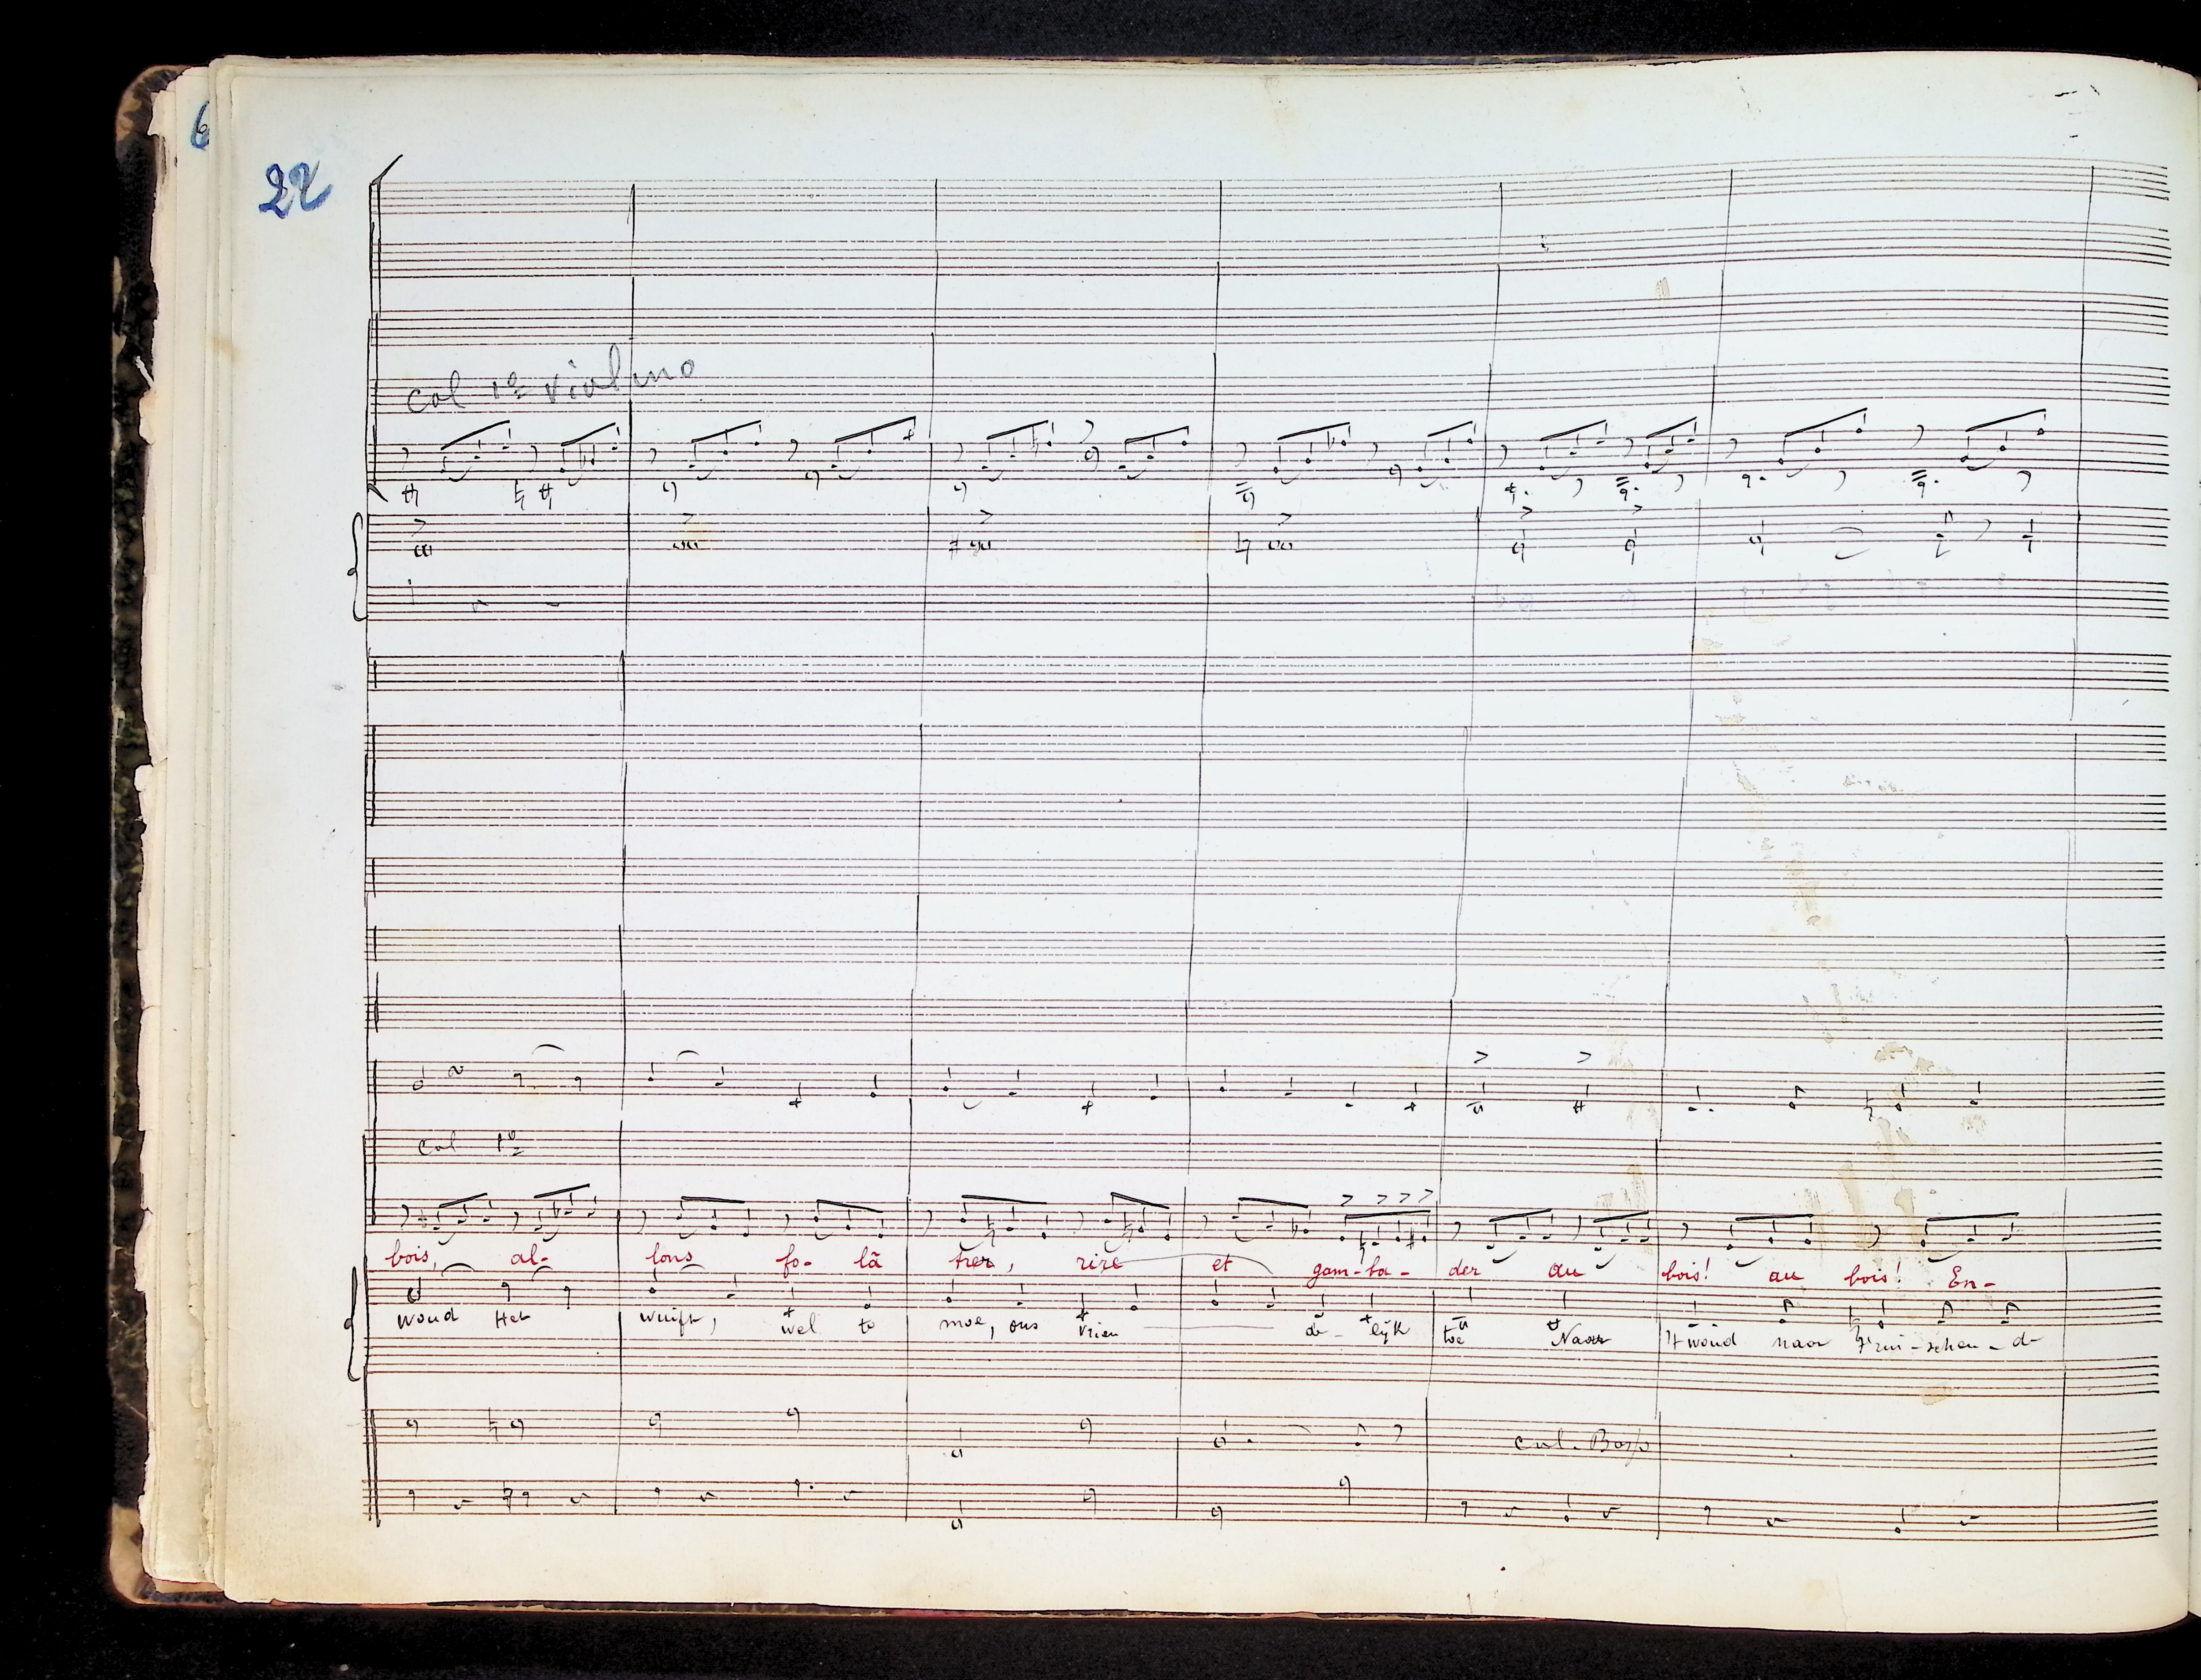 6
22
col 1º violino
col 1º
bois, al- lons fo- lâ trer, rire et gam-ba- der au bois! au bois! En-
woud Het wuift, wel to moe, ons vrien de- lijk toe Naar 't woud naar
col. Basso